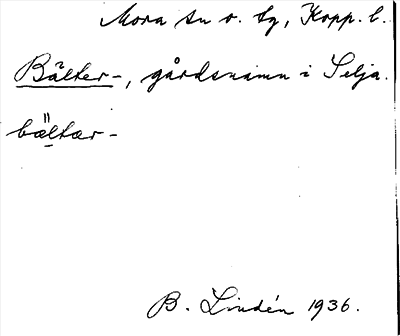 Mora sn o. tg, Kopp. l.
Bälter-, gårdsnamn i Selja.
bæ̤̈ltær-
B. Lindén 1936.